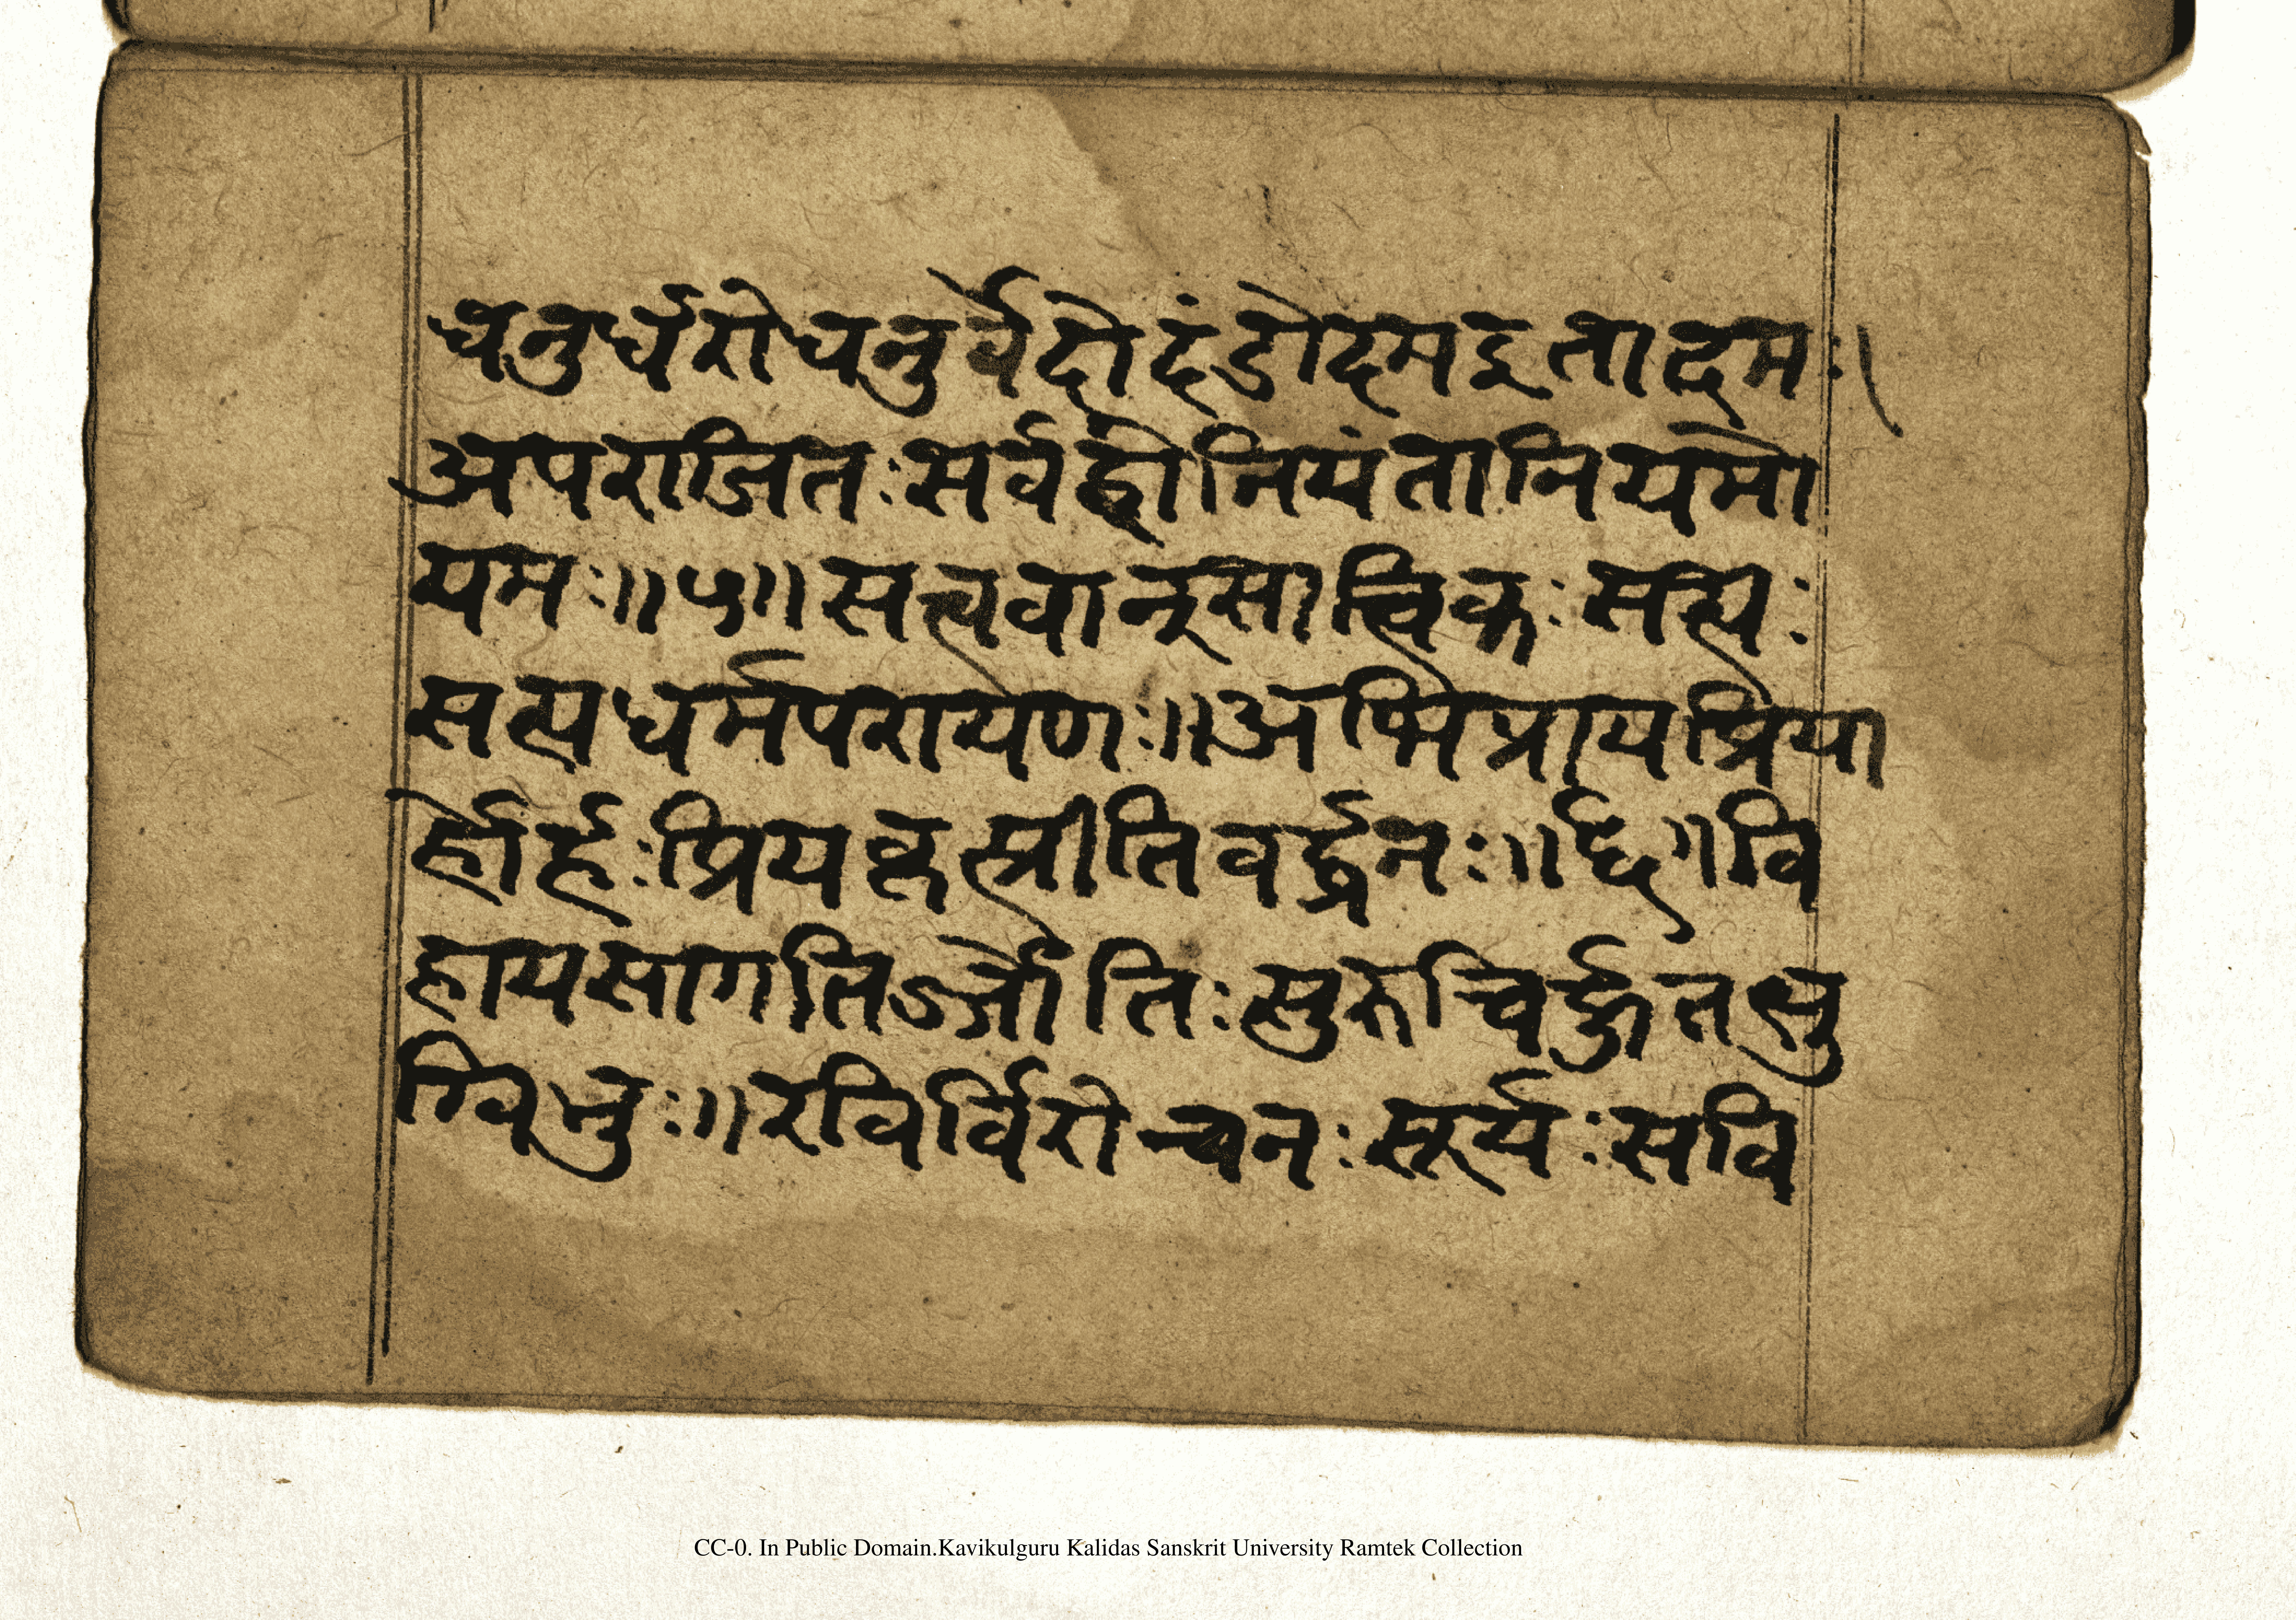 धनुर्धरोधनुर्वेदोदंडोदमइतादमः।
अपराजितःसर्वहोनियंतानियमो
यमः॥५॥सत्त्ववान्सात्त्विकःसत्यः
सत्यधर्मपरायणः॥अभिप्रायप्रिया
र्होर्हःप्रियकृत्प्रीतिवर्द्धनः॥६॥वि
हायसागतिर्ज्जोतिःसुरुचिर्हुतभु
ग्विभुः॥रविर्विरोचनःसूर्यःसवि
CC-0. In Public Domain.Kavikulguru Kalidas Sanskrit University Ramtek Collection